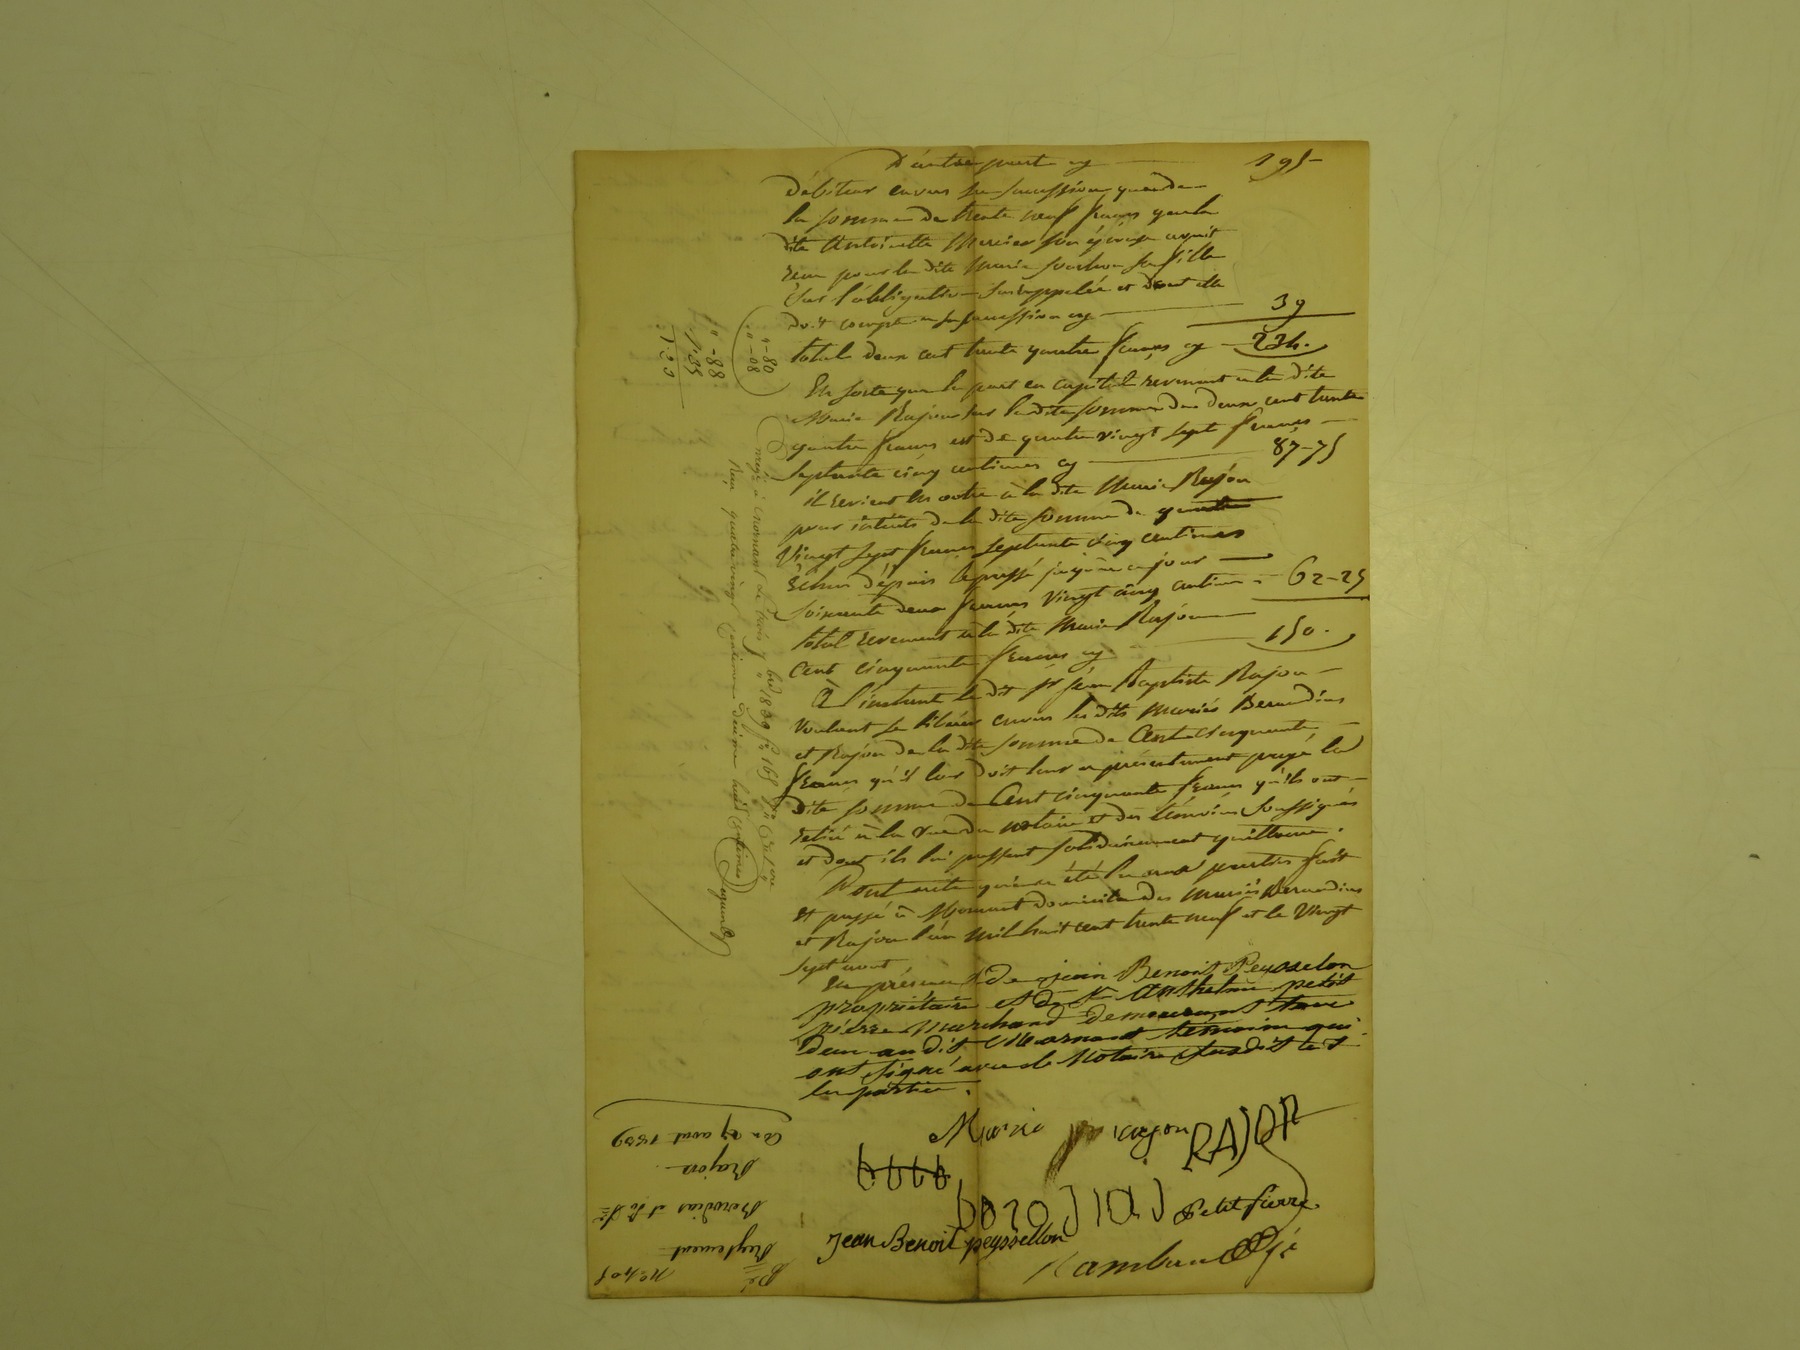 D'autre part cy 195
débiteur envers sa succession que de
la somme de trente neuf francs que la
dite Antoinette Mercier son épouse avait
reçu pour la dite Marie sa fille
sur l'obligation susrappelée et dont elle
doit compte a sa succession cy 39
total deux cent trente quatre francs cy 234.
En sorte que la part en capital revenant à la dite
Marie Rajon sur la dite somme de deux cent trente
quatre francs est de quatre vingt sept francs
septante cinq centimes cy 87-75
il revient en outre à la dite Marie Rajon
pour intérêts de la dite somme de quatre
Vingt sept francs septante cinq centimes
échus depuis le passé jusqu'à ce jour
soixante deux francs vingt cinq centimes 62-25
total revenant à la dite Marie Rajon
Cent cinquante francs cy 150.
A l'instant le dit sr Jean Baptiste Rajon
voulant se libérer envers les dits mariés Berardias
et Rajon de la dite somme de Cent cinquante
francs qu'il leur doit leur a présentement payé la
dite somme de Cent cinquante francs qu'ils ont
retiré à la vue du notaire et des témoins soussignés
et dont ils lui passent solidairement quittance.
Dont acte qui a été lu aux parties fait
et passé à Mornant domicile des mariés Berardias
et Rajon l'an mil huit cent trente neuf et le vingt
sept aout
En présence de jean Benoit Peysselon
propriétaire et de sr Anthelme petit
pierre marchand demeurant tous
deux au dit Mornant témoins qui
ont signé avec le Notaire susdit et
les parties.
Marie rajon RAJON
Petit pierre
Jean Benoit peyssellon
Rambaud
enregé à Mornant le trois 7bre 1839 fo 165
Reçu quatre vingt centimes décime huit centimes
4-80
0-08
0-88
Du 27 aout 1839
Rajon
Berardias et
Reglement
No 405